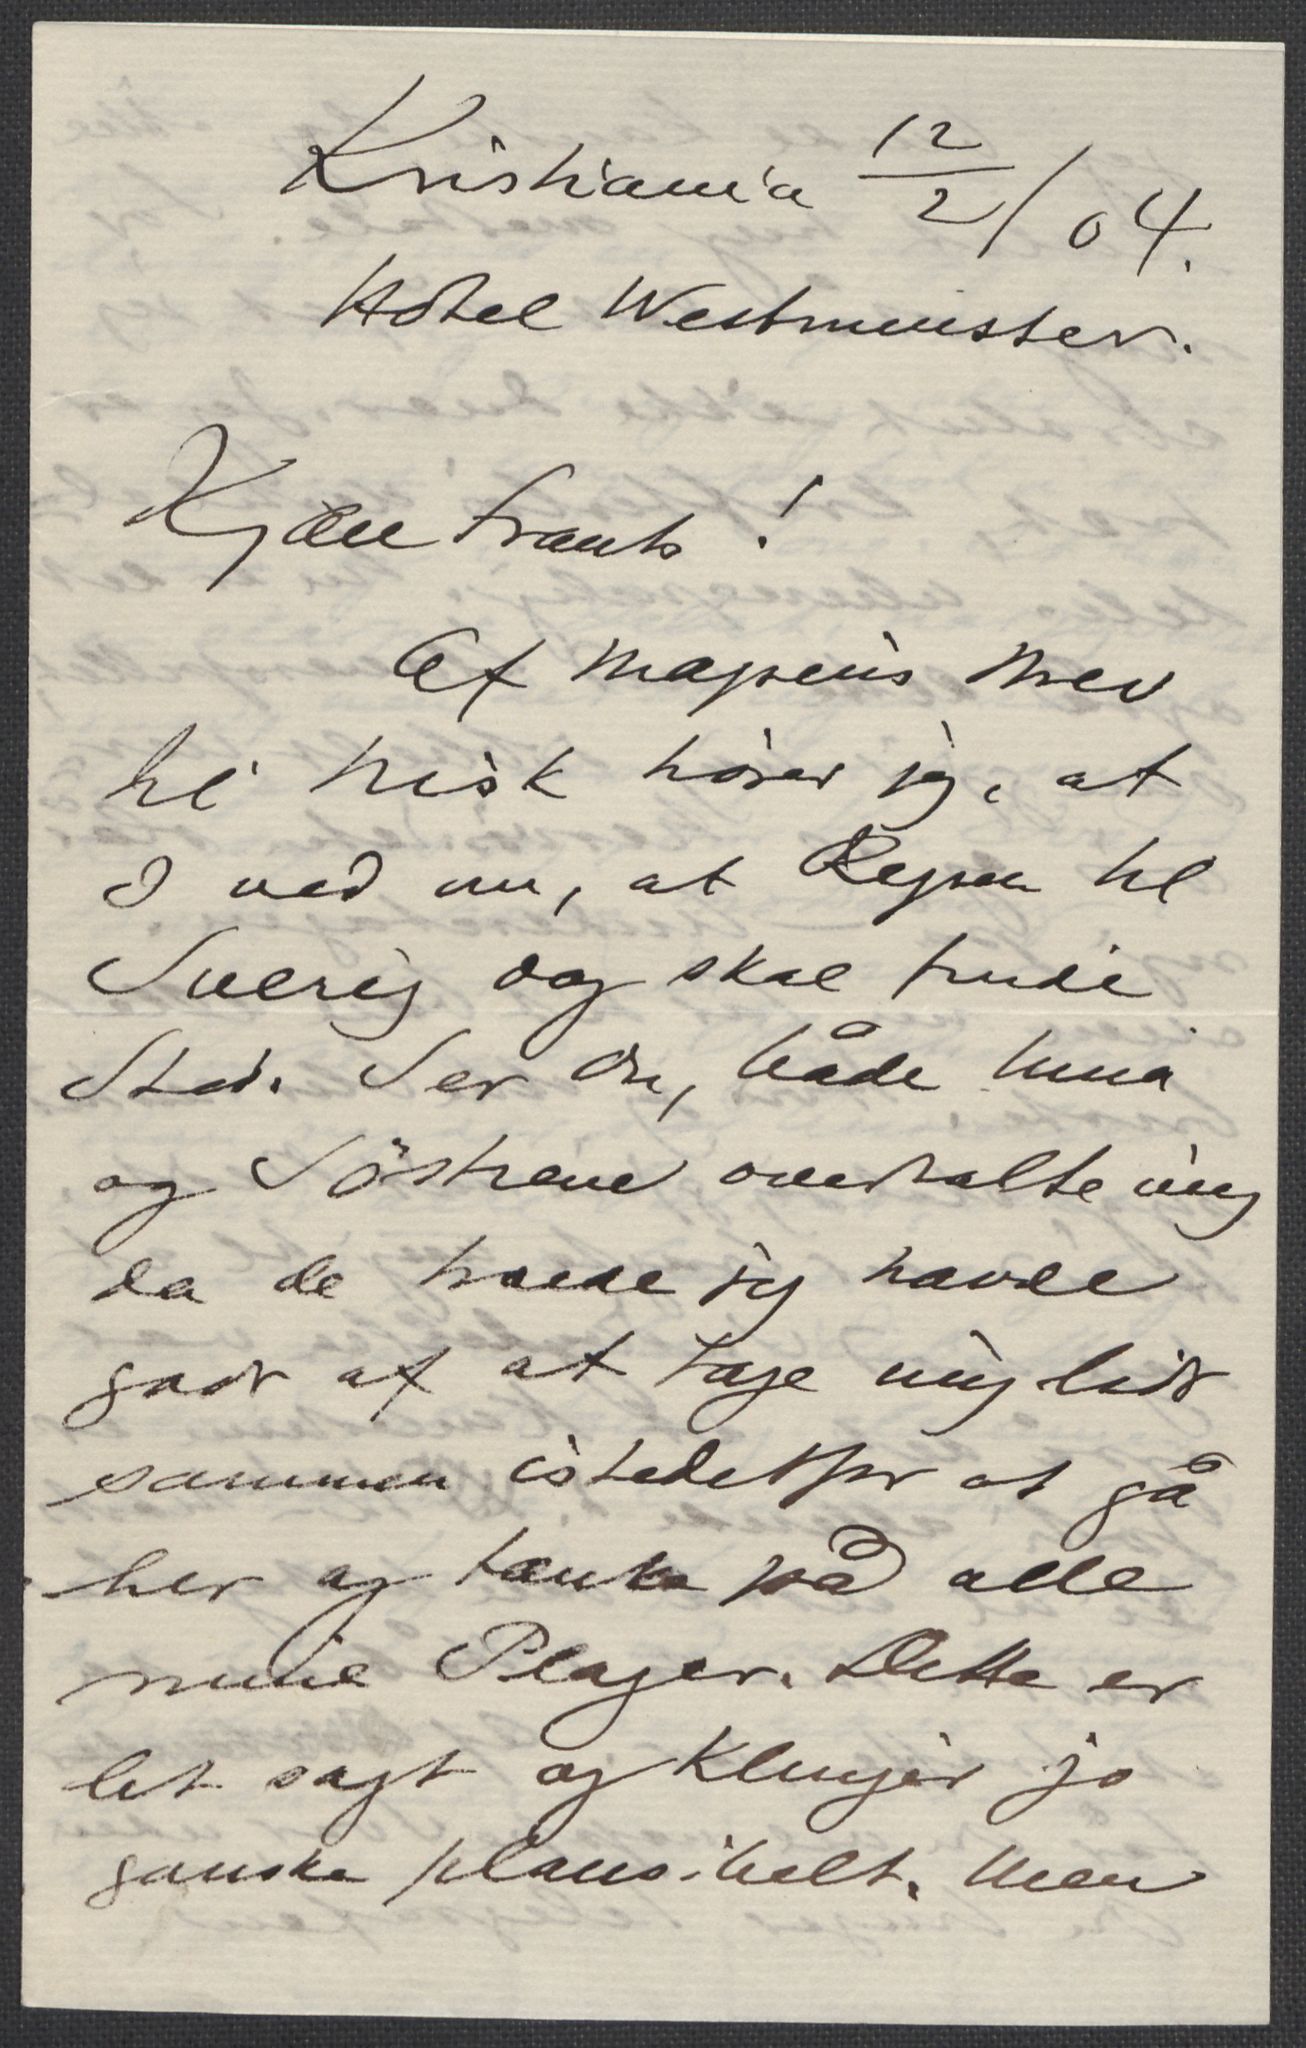 Kristiania 12/2/04.
Hotel Westminster.
Kjære Frants!
Af Majsens Brev
til Tusk hører jeg, at
I ved nu, at Rejsen til
Sverig dog skal finde
Sted. Ser Du, både Nina
og Søstrene overtalte mig
da de troede jeg havde
godt af at tage mig lidt
sammen istedetfor at gå
her og tænke på alle
mine Plager. Dette er
let sagt og klinger jo
ganske plausibelt. Men